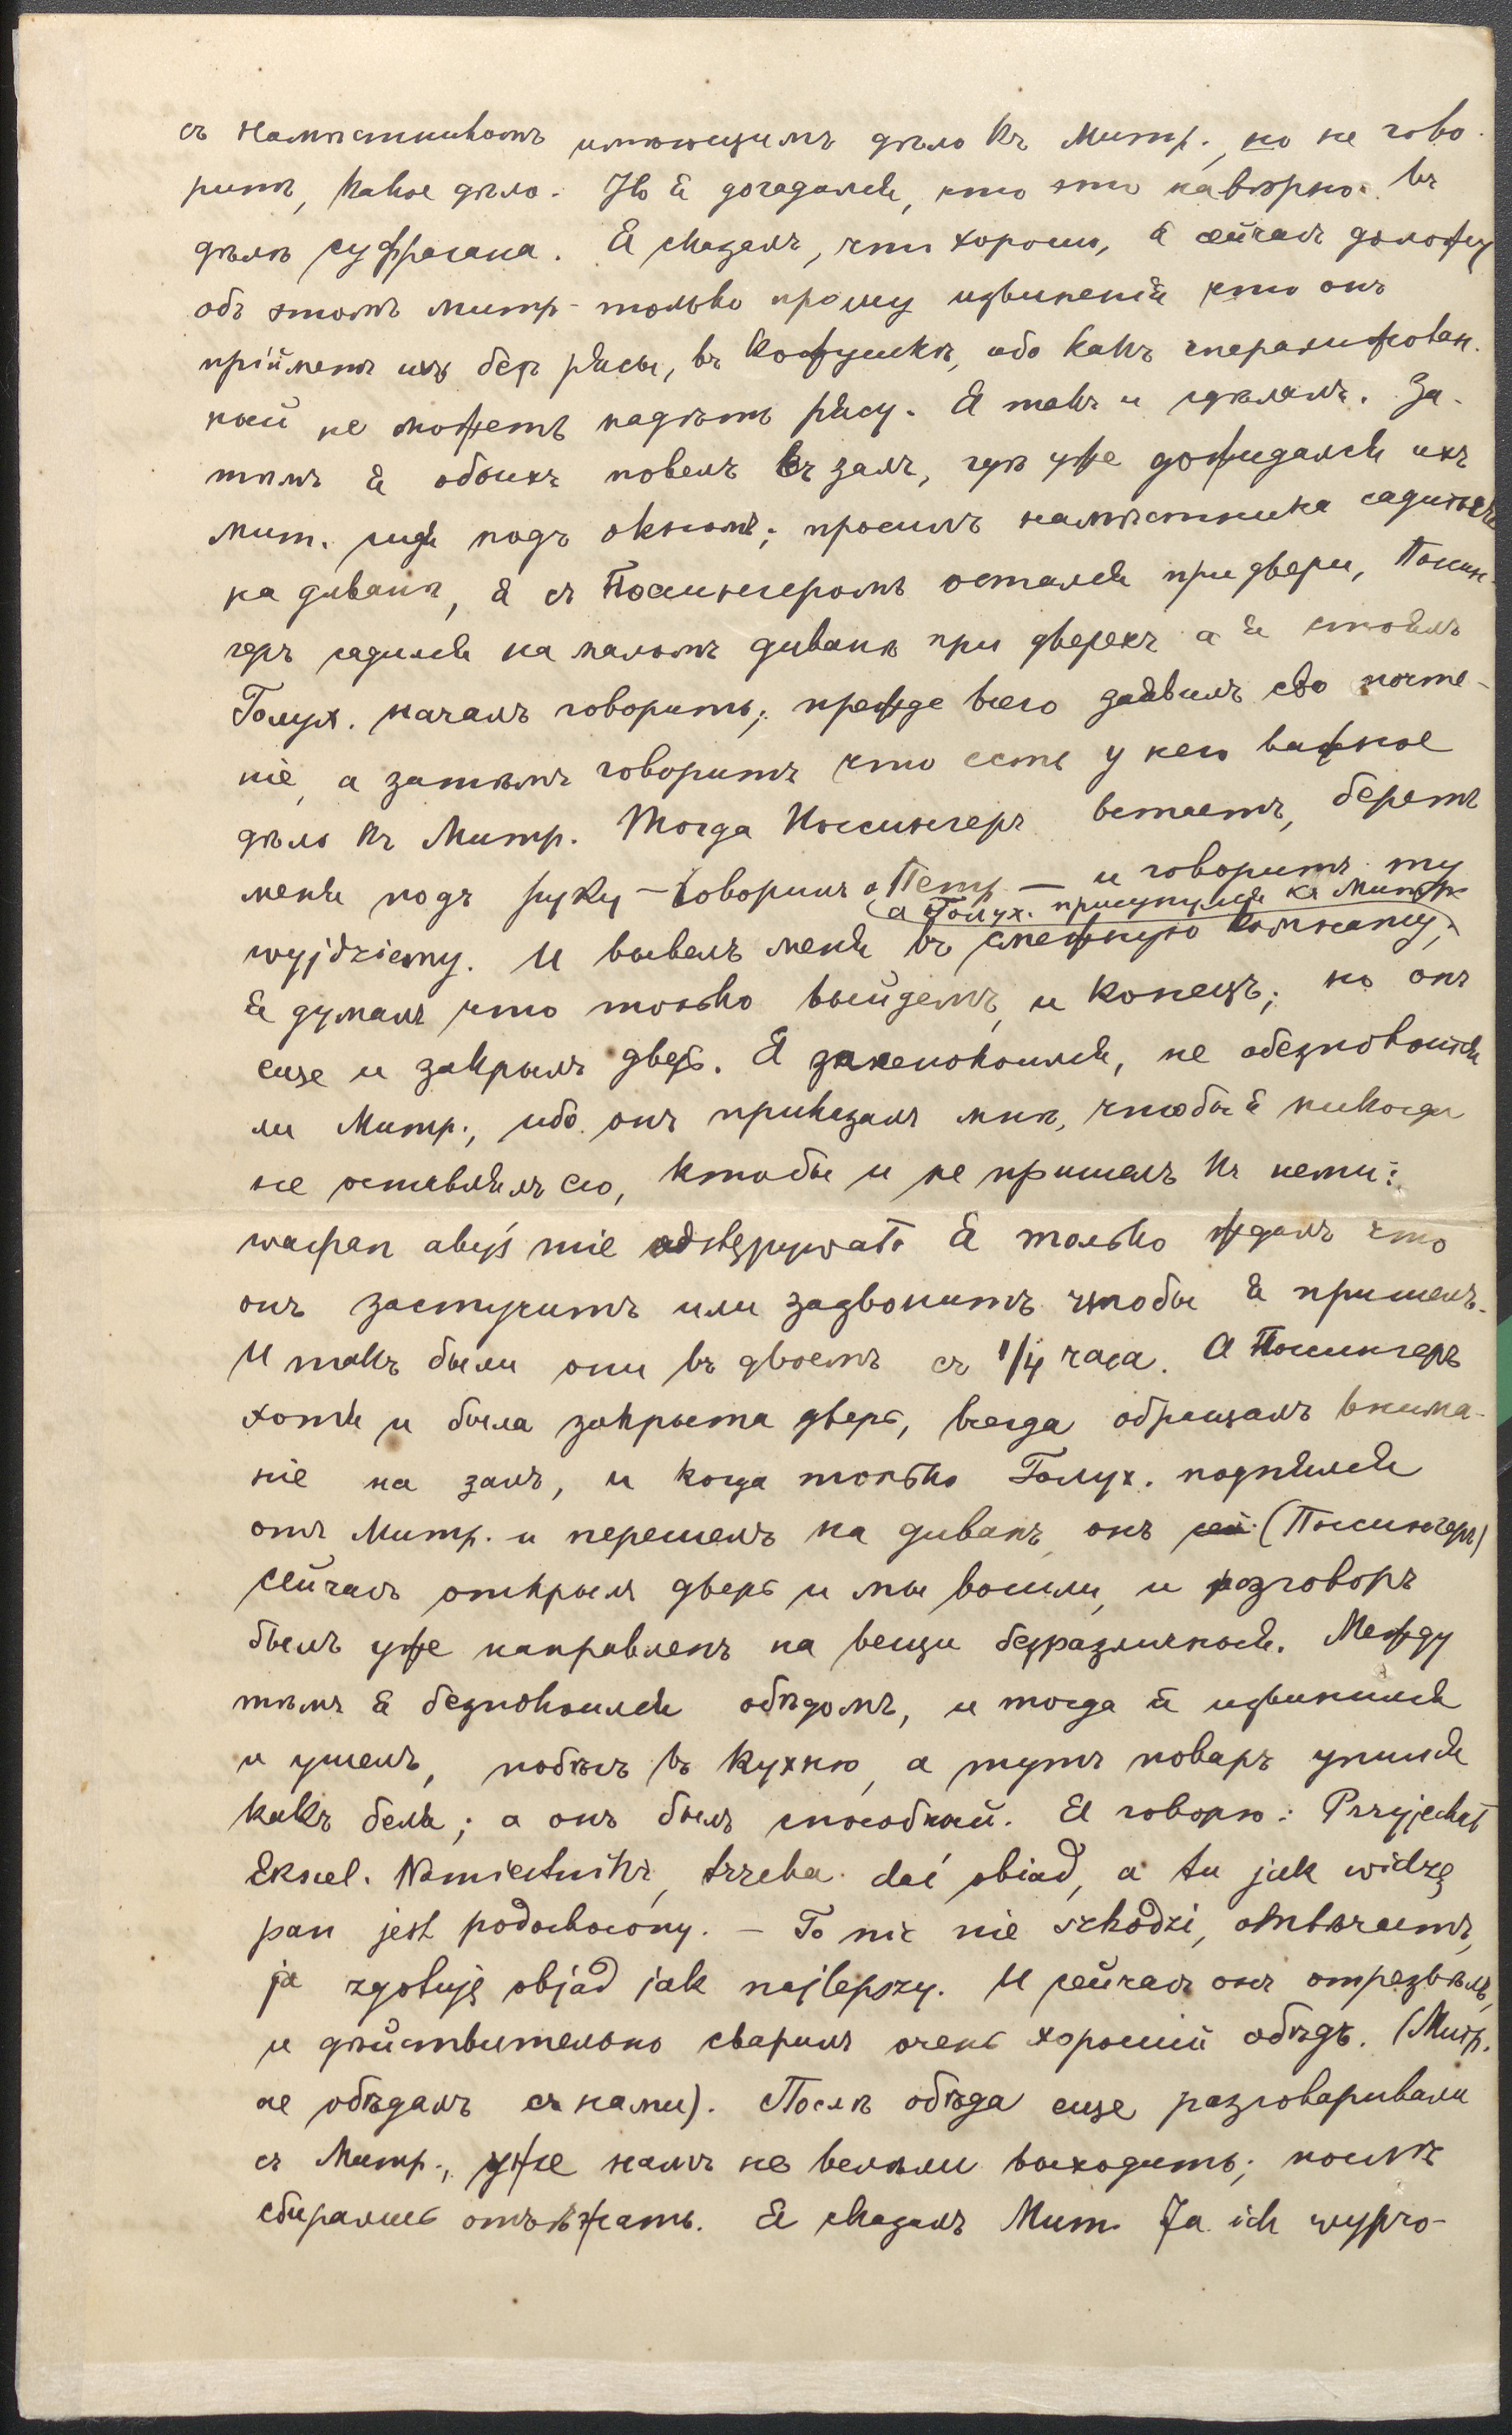 съ намѣстникомъ имѣющимъ дѣло къ Митр., но не гово-
ритъ, какое дѣло. Но я догадался, что это навѣрно. въ
дѣлѣ суффрагана. Я сказалъ, что хорошо, я сейчасъ доложу
объ этомъ митр- только прошу извиненія что онъ
прійметъ ихъ безъ рясы, въ кожушкѣ, ибо какъ
ный не можетъ надѣть рясу. Я такъ и сдѣлалъ. За-
тѣмъ я обоихъ повелъ въ залъ, гдѣ уже дожидался ихъ
мит. сидя подъ окномъ; просилъ намѣстника садиться
на диванѣ, я съ Поссингеромъ остался при двери, Посин-
геръ садился на маломъ диванѣ при дверехъ а я стоялъ
Голух. началъ говорить; прежде всего заявилъ сво почте-
ніе, а затѣмъ говоритъ что есть у него важное
дѣло къ Митр. Тогда Поссингеръ встаетъ, беретъ
меня подъ руку – говорилъ о. Петр — и говоритъ my
(а Голух. присунулся къ Митр.
wyjdziemy. И вывелъ меня въ смежную комнату;
я думалъ что только выйдемъ, и конецъ; но онъ
еще и закрылъ дверь. Я занепокоился, не обезпокоится
ли Митр., ибо онъ приказалъ мнѣ, чтобы я никогда
не оставлялъ его, ктобы и не пришелъ къ нему:
waśpan abyś mie Я только ждалъ что
онъ застучитъ или задзвонитъ чтобы я пришелъ.
И такъ были они въ двоемъ съ 1/4 часа. А Поссингеръ
хотя и была закрыта дверь, всегда обращалъ внима-
ніе на залъ, и когда только Голух. поднялся
отъ Митр. и перешелъ на диванъ, онъ (Поссингеръ)
сейчасъ открылъ дверь и мы вошли, и розговоръ
былъ уже направленъ на вещи безразличныя. Между
тѣмъ я безпокоился обѣдомъ, и тогда я извинился
и ушелъ, побѣгъ въ кухню, а тутъ поваръ упился
какъ беля; а онъ былъ способный. Я говорю: Przyjechał
Ekscel. Namiestnikъ, trzeba dać obiad, a tu jak widzę
pan jest podochocony. – To nic nie szkodzi, отвѣчаетъ,
ja zgotuję objad jak najlepszy. И сейчасъ онъ отрезвѣлъ,
и дѣйствительно сварилъ очень хорошій обѣдъ. (Митр.
не обѣдалъ съ нами). Послѣ обѣда еще разговаривали
съ Митр., уже намъ не велѣли выходить; послѣ
сбирались отъѣзжать. Я сказалъ Мит. Ja ich wypro-